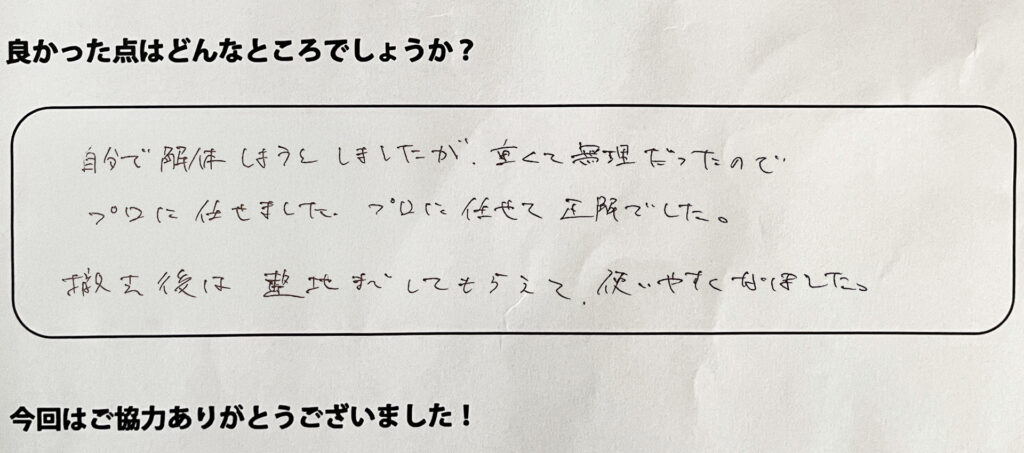 良かった点はどんなところでしょうか？
自分で解体しようとしましたが、重くて無理だったので
プロに任せました。プロに任せて正解でした。
撤去後は整地までしてもらえて、使いやすくなりました。
今回はご協力ありがとうございました！